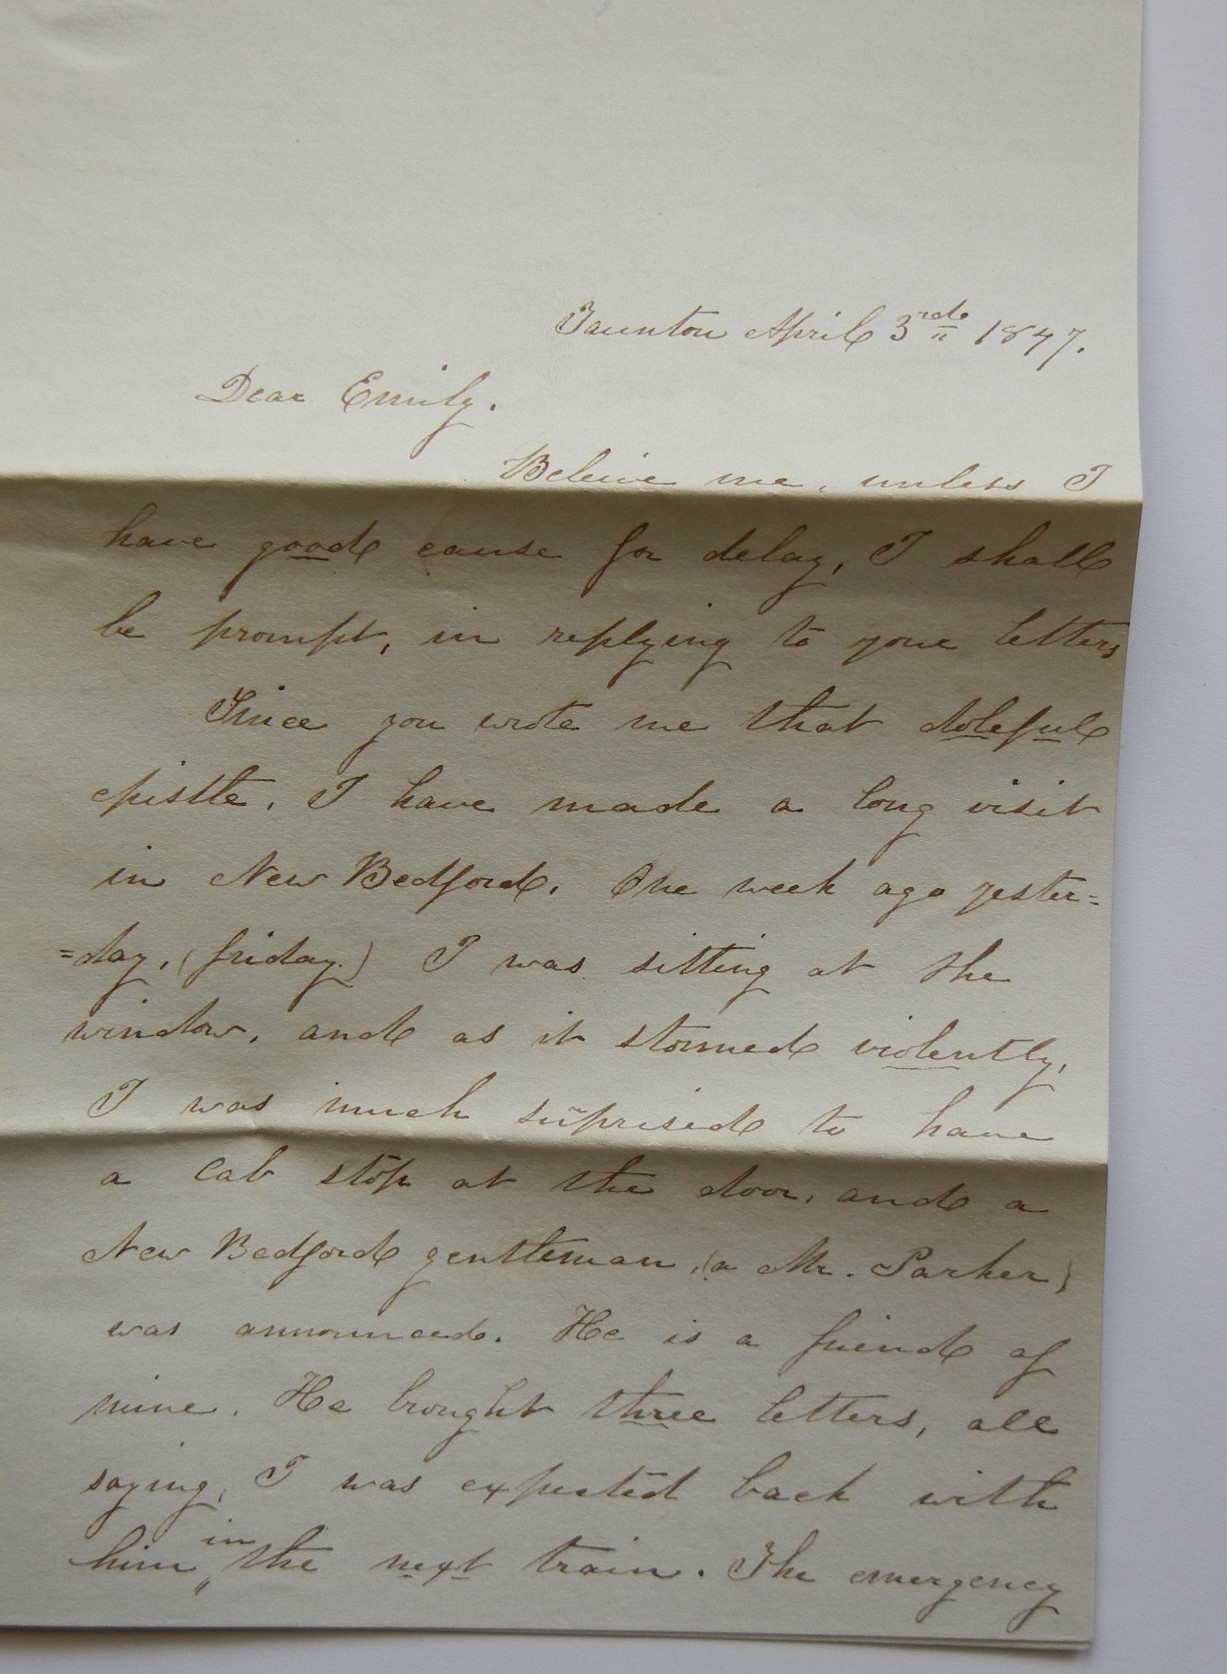 Taunton April 3rd 1847.
Dear Emily.
Beleive me, unless I
have good cause for delay, I shall
be prompt, in replying to your letters
Since you wrote me that doleful
epistle, I have made a long visit
in New Bedford. One week ago yester=
=day, (friday.) I was sitting at the
window, and as it stormed violently,
I was much surprised to have
a cab stop at the door, and a
New Bedford gentleman, (a Mr. Parker)
was announced. He is a friend of
mine. He brought three letters, all
saying, I was expected back with
him in the next train. The emergency